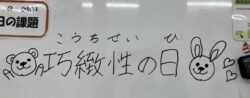 日の課題
こうちせい ひ
巧緻性の日